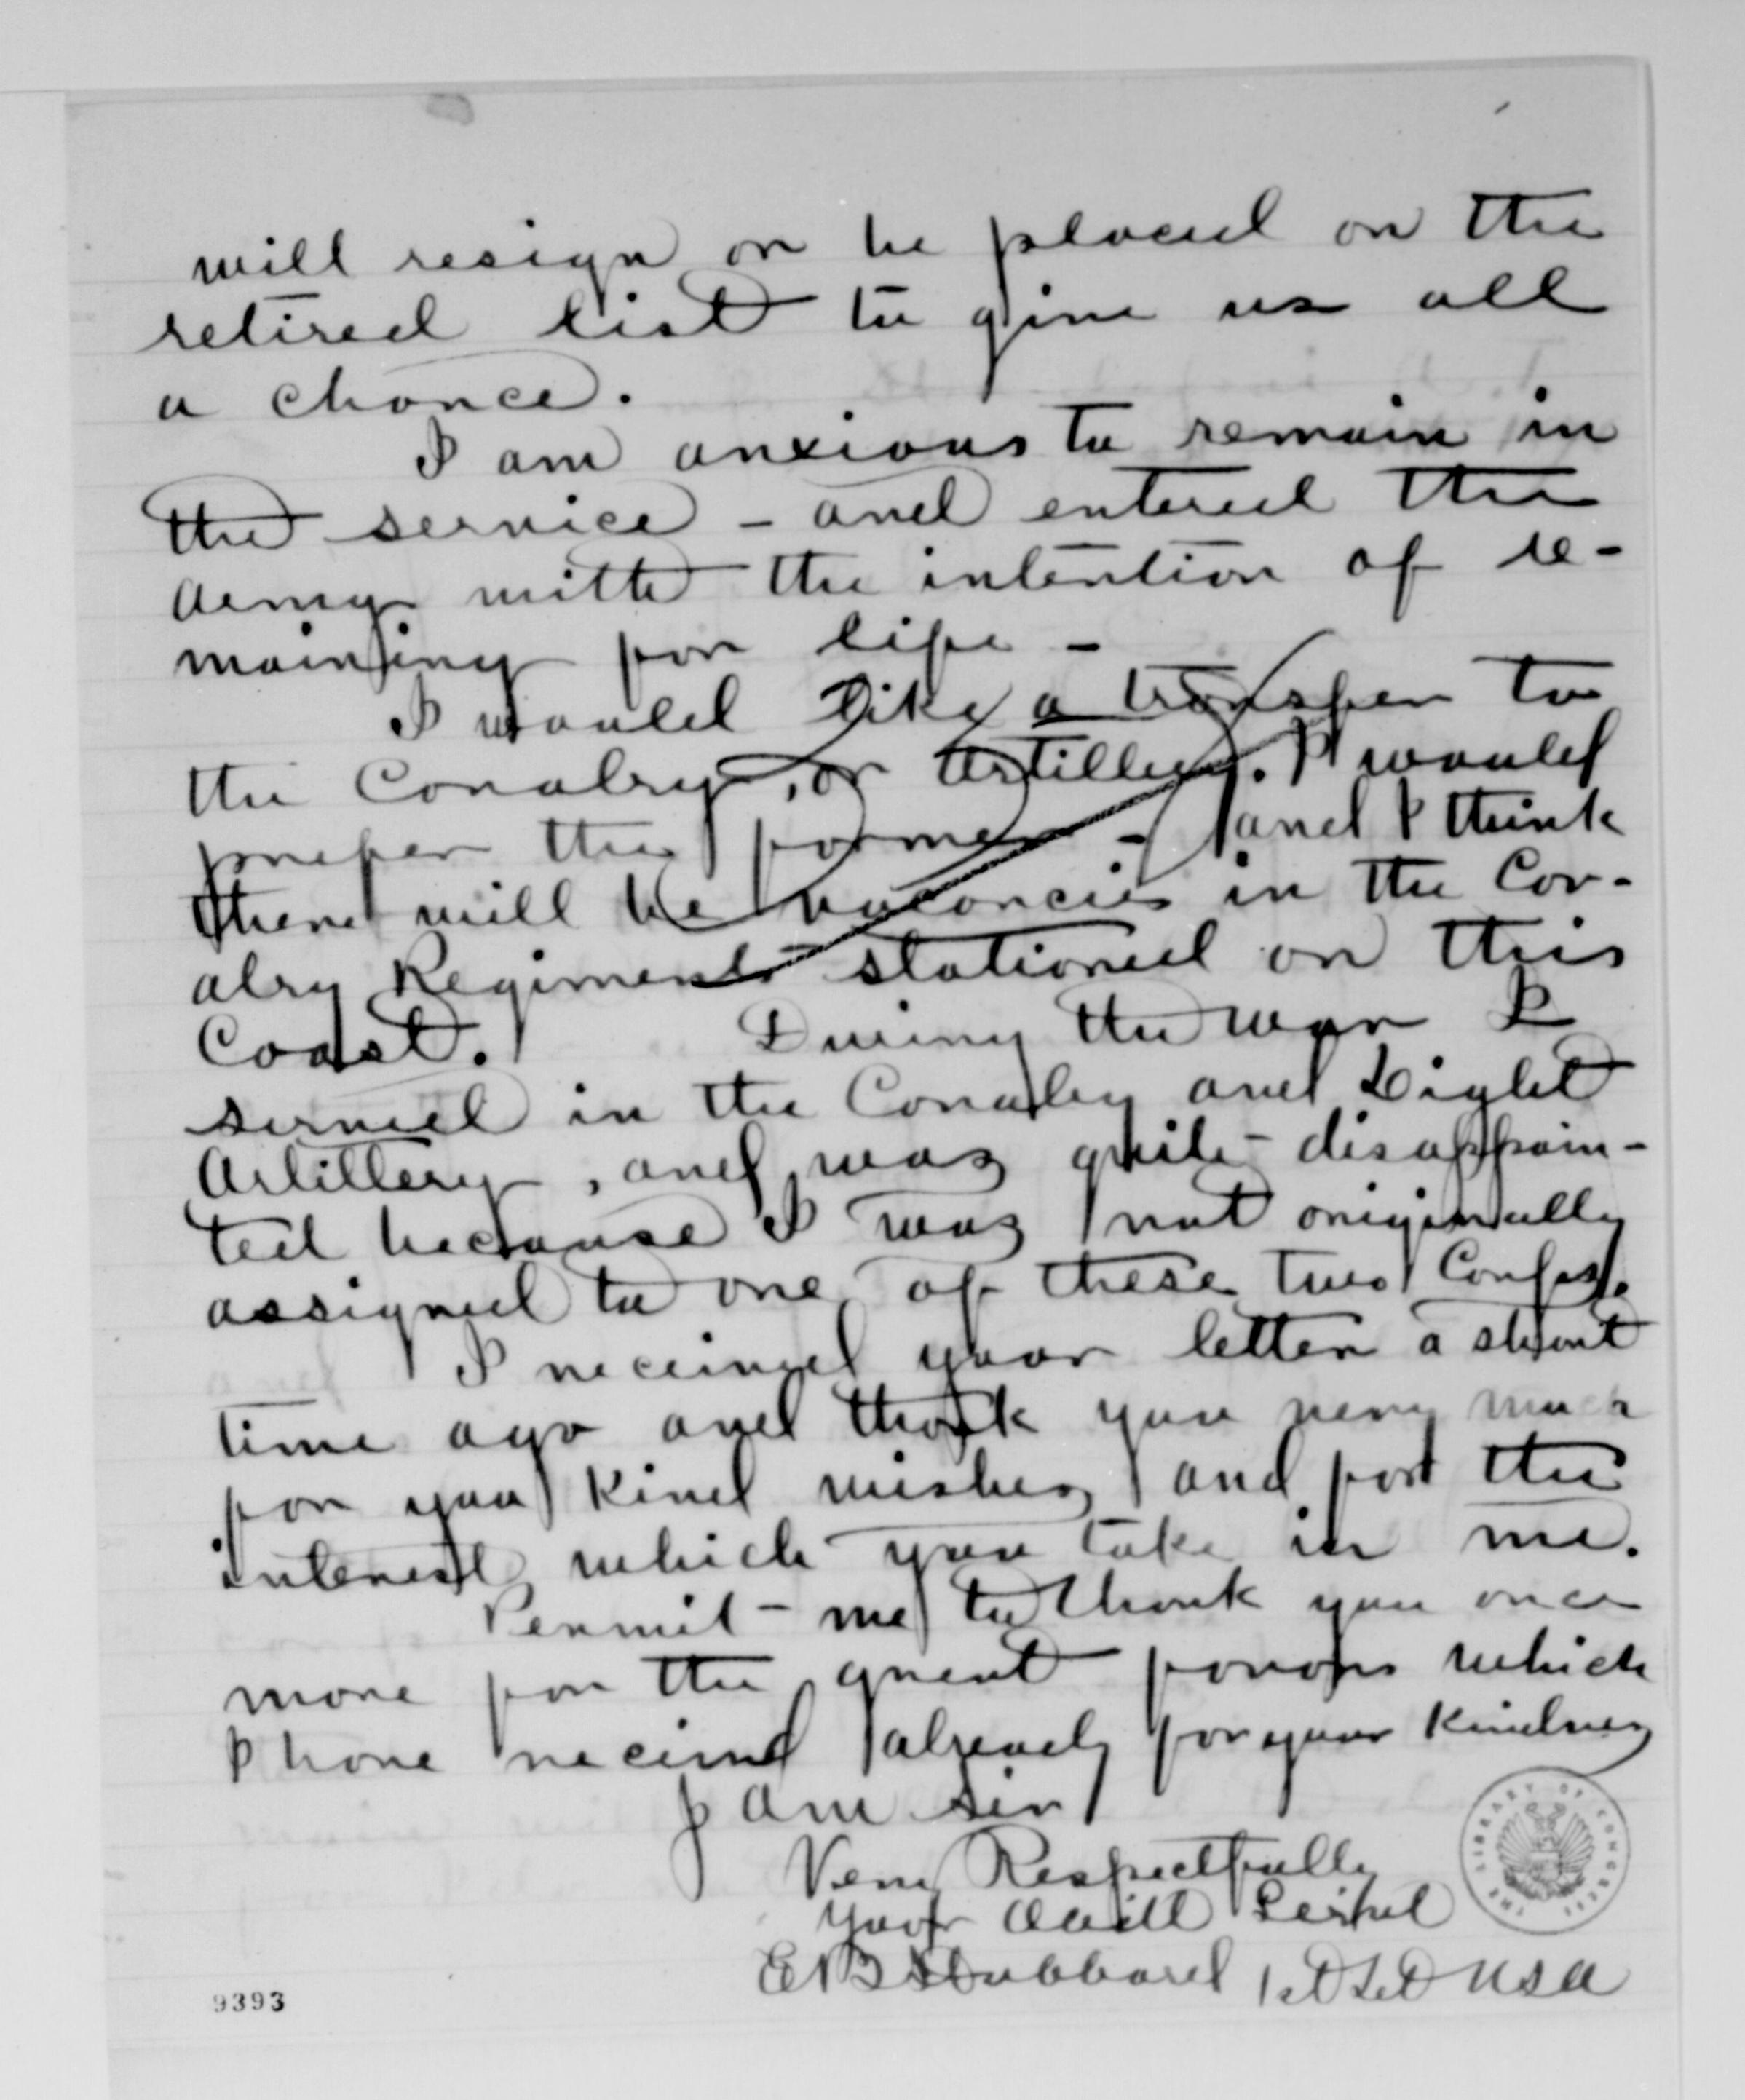 will resign or be placed on the
retired list to give us all
a chance.
I am anxious to remain in
the service - and entered the
Army with the intention of re-
maining for life -
I would like a transfer to
the Cavalry, or Artillery. I would
prefer the former - and I think
there will be vacancies in the Cav-
alry Regiments stationed on this
Coast. During the war I
served in the Cavalry and Light
Artillery, and was quite disappoin-
ted because I was not originally
assigned to one of these two Corps.
I received your letter a short
time ago and thank you very much
for you kind wishes and for the
interest which you take in me.
Permit me to thank you once
more for the great favors which
I have received already for your kindness
I am sir
Very Respectfully
Your Obdt Servt
E B Hubbard 1st Lt USA
THE LIBRARY OF CONGRESS
9393